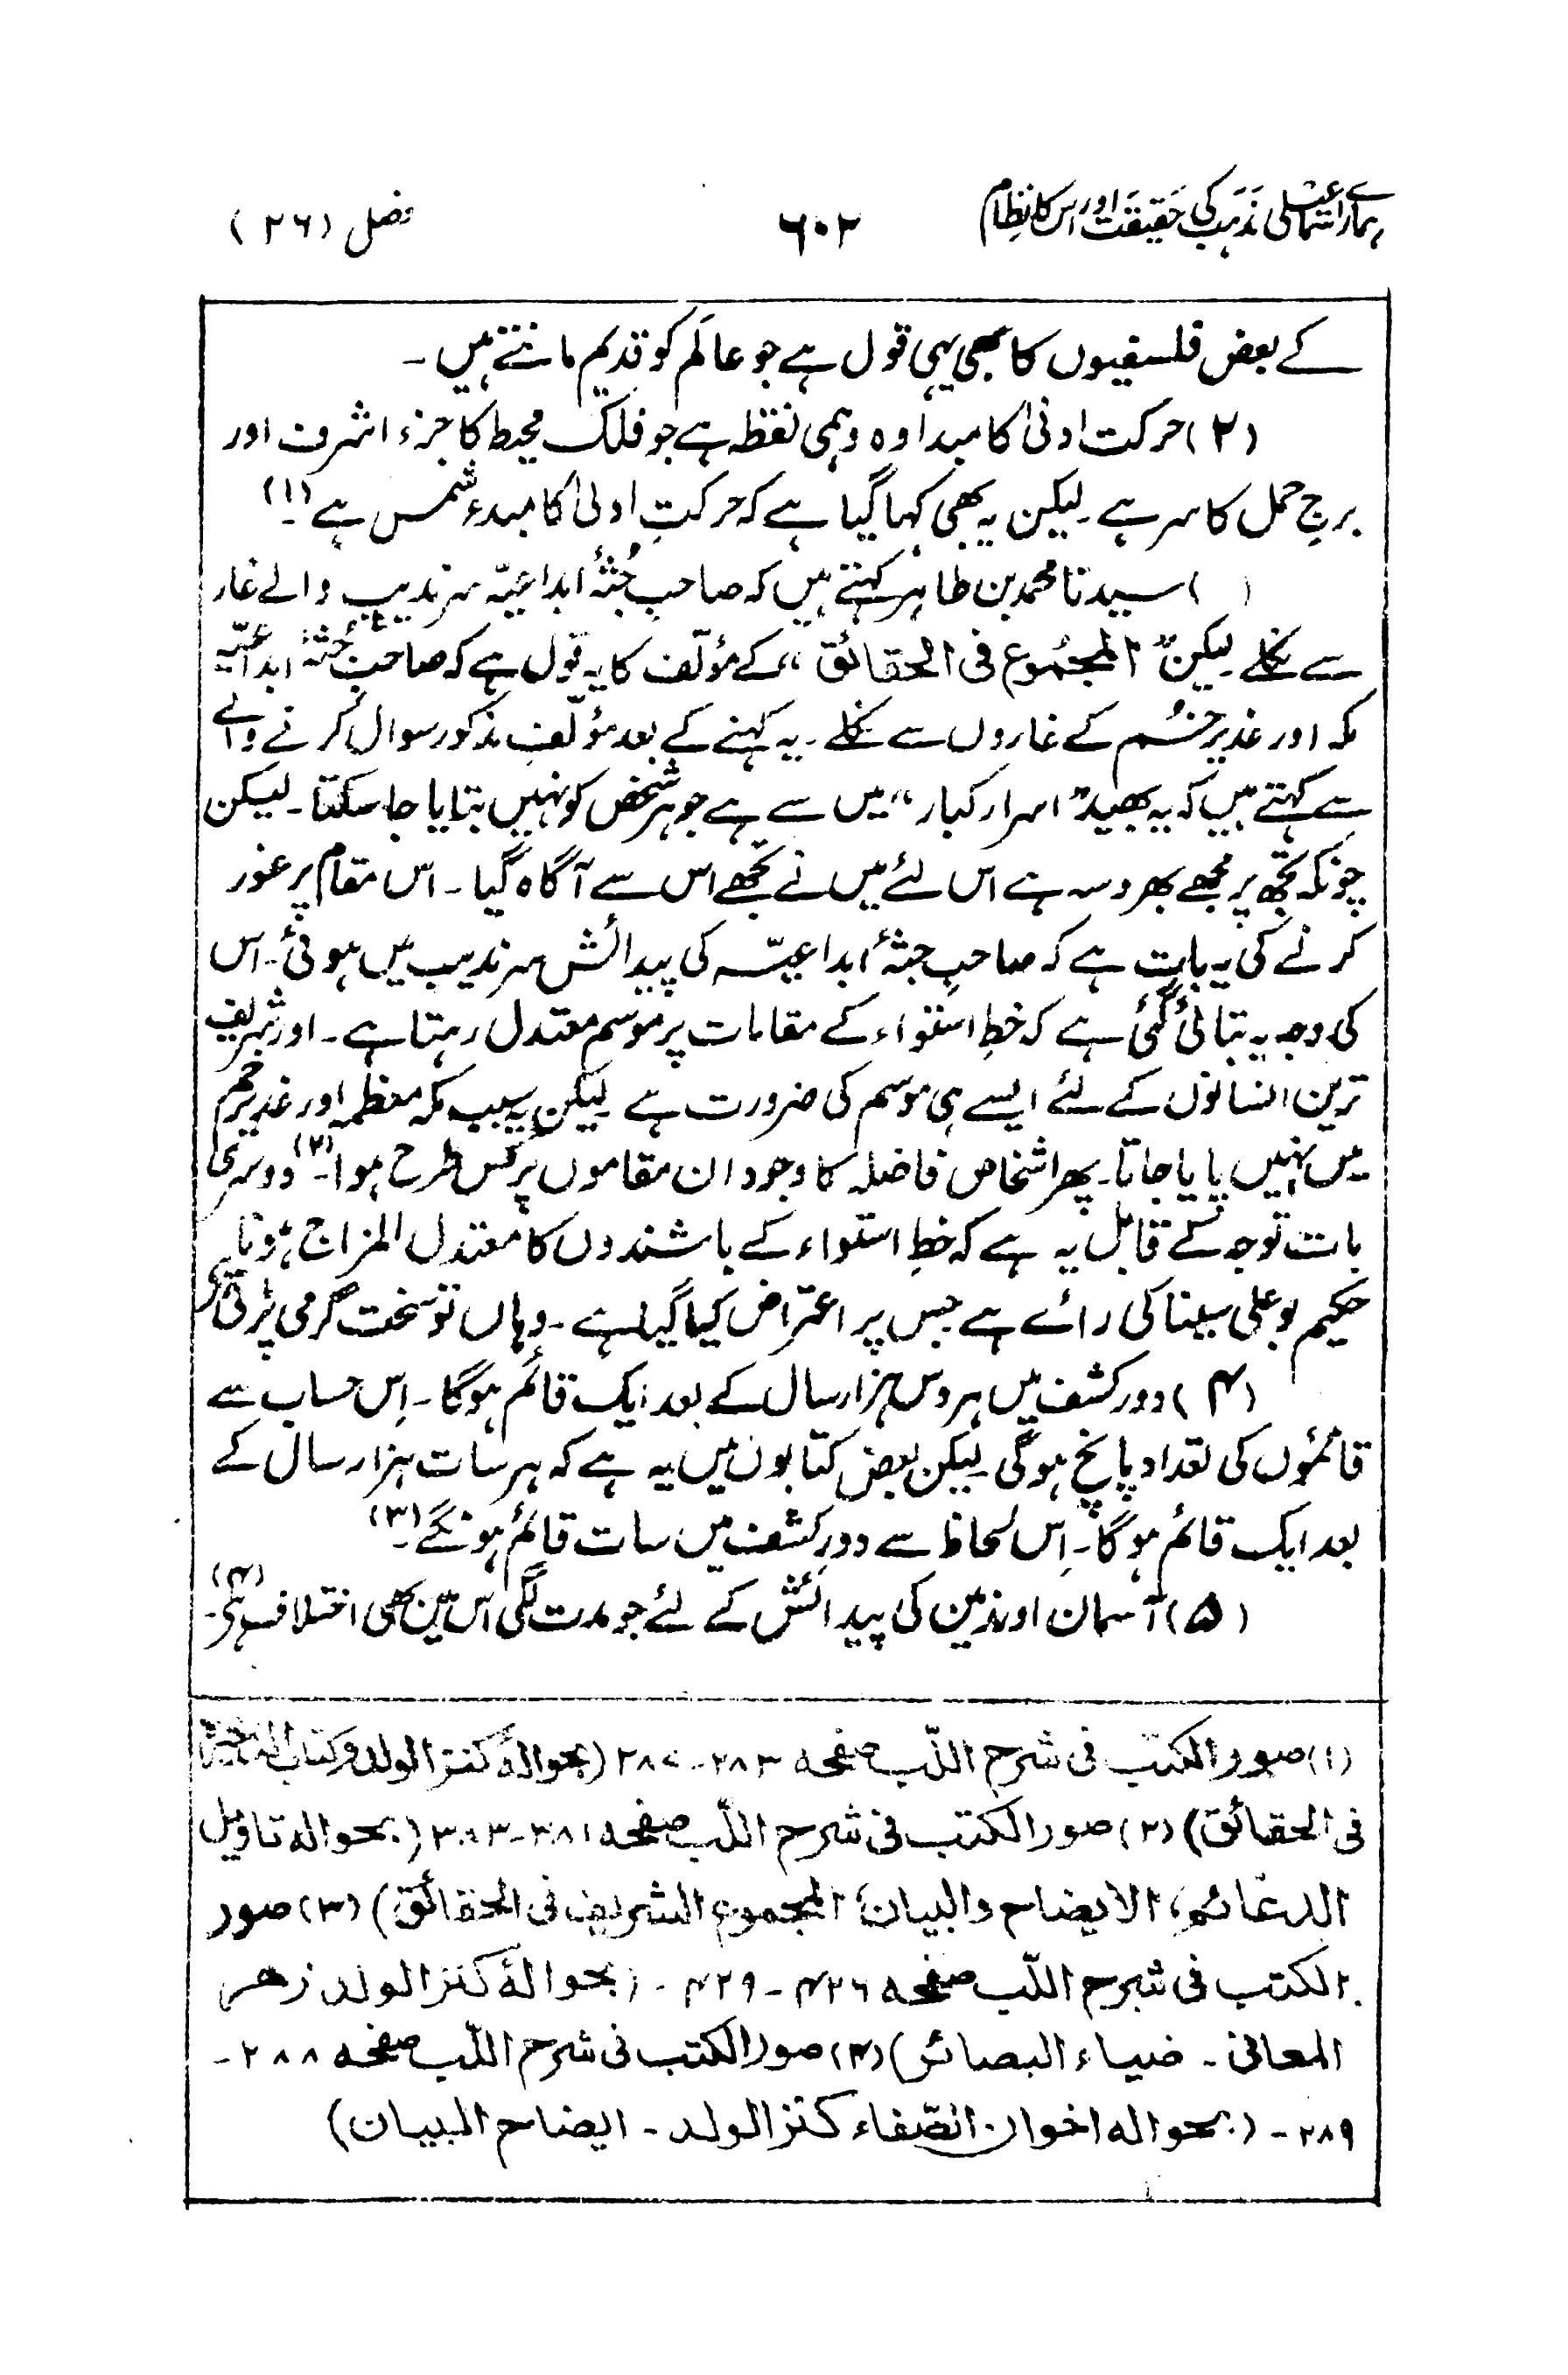 ہمارے اسماعیلی مذہب کی حقیقت اور اس کا نظام ۶۰۲ فصل (۲۶)
کے بعض فلسفیوں کا بھی یہی قول ہے جو عالَم کو قدیم مانتے ہیں ۔
(۲) حرکت اولیٰ کا مبدا وہ وہمی نقطہ ہے جو فلک محیط کا جزء اشرف اور
برجِ حمل کا سر ہے ۔ لیکن یہ بھی کہا گیا ہے کہ حرکتِ اولیٰ کا مبدء شمس ہے ۔(۱)
( ) سیدنا محمد بن طاہر کہتے ہیں کہ صاحبِ جُثۂ ابداعیّہ سرندیب والے غار
سے نکلے ۔ لیکن "المجمُوع فی الحقائق" کے مؤلّف کا یہ قول ہے کہ صاحبِ جُثۂ ابداعیّہ
مکہ اور غدیر خُم کے غاروں سے نکلے ۔ یہ کہنے کے بعد مؤلّف مذکور سوال کرنے والے
سے کہتے ہیں کہ یہ بھید "اسرار کبار" میں سے ہے جو ہر شخص کو نہیں بتایا جا سکتا ۔ لیکن
چونکہ تجھ پر مجھے بھروسہ ہے اس لئے میں نے تجھے اس سے آگاہ کیا ۔ اس مقام پر غور
کرنے کی یہ بات ہے کہ صاحبِ جثۂ ابداعیّہ کی پیدائش سرندیب میں ہوئی ۔ اس
کی وجہ یہ بتائی گئی ہے کہ خطِ استواء کے مقامات پر موسم معتدل رہتا ہے ۔ اور شریف
ترین انسانوں کے لئے ایسے ہی موسم کی ضرورت ہے ۔ لیکن یہ سبب مکہ معظمہ اور غدیر خم
میں نہیں پایا جاتا ۔ پھر اشخاص فاضلہ کا وجود ان مقاموں پر کس طرح ہوا ۔(۲) دوسری
بات توجہ کے قابل یہ ہے کہ خطِ استواء کے باشندوں کا معتدل المزاج ہونا یہ
حکیم بو علی سینا کی رائے ہے جس پر اعتراض کیا گیا ہے ۔ وہاں تو سخت گرمی پڑتی ہے
(۴) دور کشف میں ہر دس ہزار سال کے بعد ایک قائم ہوگا ۔ اِس حساب سے
قائموں کی تعداد پانچ ہوگی ۔ لیکن بعض کتابوں میں یہ ہے کہ ہر سات ہزار سال کے
بعد ایک قائم ہوگا ۔ اِس لحاظ سے دورِ کشف میں سات قائم ہونگے ۔(۳)
(۵) آسمان اور زمین کی پیدائش کے لئے جو مدت لگی اس میں بھی اختلاف ہے ۔(۴)
(۱) صور الکتب فی شرح اللّب صفحہ ۲۸۳-۲۸۷ (بحوالۂ کنز الولد و کتاب
فی الحقائق) (۲) صور الکتب فی شرح اللّب صفحہ ۳۸۱-۳۸۳ (بحوالہ تاویل
الدعائم، الایضاح والبیان، المجموع الشریف فی الحقائق) (۳) صور
الکتب فی شرح اللّب صفحہ ۴۲۶ - ۴۲۹ - (بحوالۂ کنز الولد زھر
المعانی ۔ ضیاء البصائر) (۴) صور الکتب فی شرح اللّب صفحہ ۲۸۸ -
۲۸۹ - (بحوالہ اخوان الصّفاء کنز الولد ۔ ایضاح البیان)